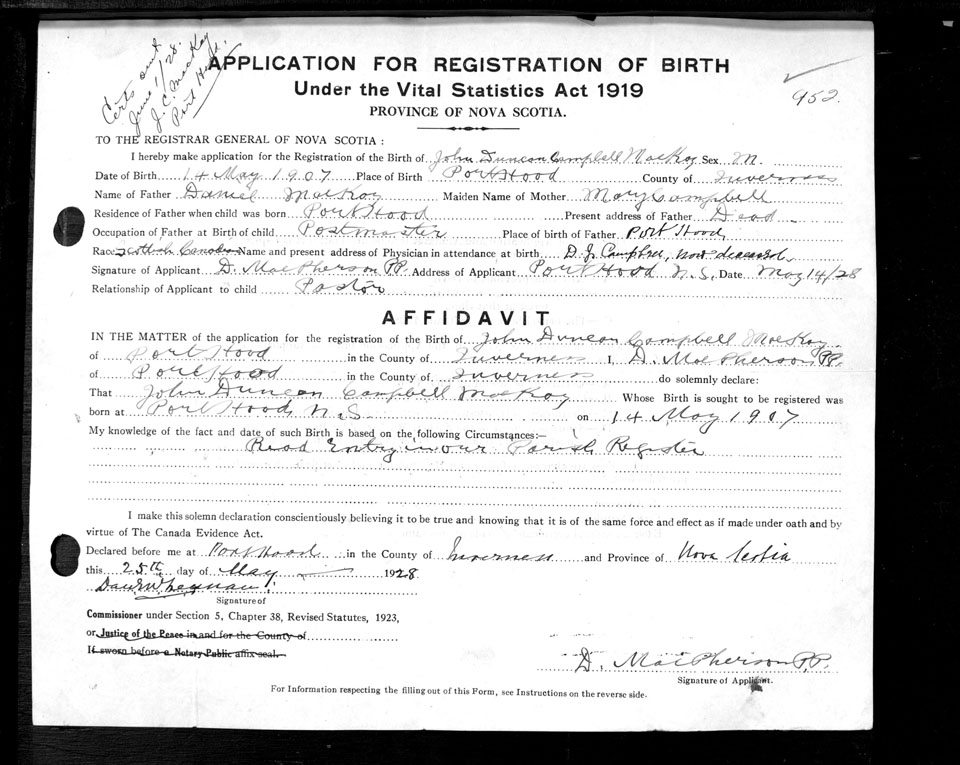 Certs sent
June 1/28.
J. C. MacKay
Port Hood.
952.
APPLICATION FOR REGISTRATION OF BIRTH
Under the Vital Statistics Act 1919
PROVINCE OF NOVA SCOTIA.
TO THE REGISTRAR GENERAL OF NOVA SCOTIA :
I hereby make application for the Registration of the Birth of John Duncan Campbell MacKay Sex M.
Date of Birth 14 May 1907 Place of Birth Port Hood County of Inverness
Name of Father Daniel MacKay Maiden Name of Mother Mary Campbell
Residence of Father when child was born Port Hood Present address of Father Dead
Occupation of Father at Birth of child Postmaster Place of birth of Father Port Hood
Race Scottish Canadian Name and present address of Physician in attendance at birth D. J. Campbell, now deceased.
Signature of Applicant D. MacPherson PP. Address of Applicant Port Hood N.S. Date May 14/28
Relationship of Applicant to child Pastor
AFFIDAVIT
IN THE MATTER of the application for the registration of the Birth of John Duncan Campbell MacKay
of Port Hood in the County of Inverness I, D. MacPherson PP.
of Port Hood in the County of Inverness do solemnly declare:
That John Duncan Campbell MacKay Whose Birth is sought to be registered was
born at Port Hood N.S. on 14 May 1907
My knowledge of the fact and date of such Birth is based on the following Circumstances:—
Read Entry in our Parish Register
I make this solemn declaration conscientiously believing it to be true and knowing that it is of the same force and effect as if made under oath and by
virtue of The Canada Evidence Act.
Declared before me at Port Hood in the County of Inverness and Province of Nova Scotia
this 25th day of May 1928.
Signature of
Commissioner under Section 5, Chapter 38, Revised Statutes, 1923,
or Justice of the Peace in and for the County of
If sworn before a Notary Public affix seal.
D. MacPherson P.P.
Signature of Applicant.
For Information respecting the filling out of this Form, see Instructions on the reverse side.